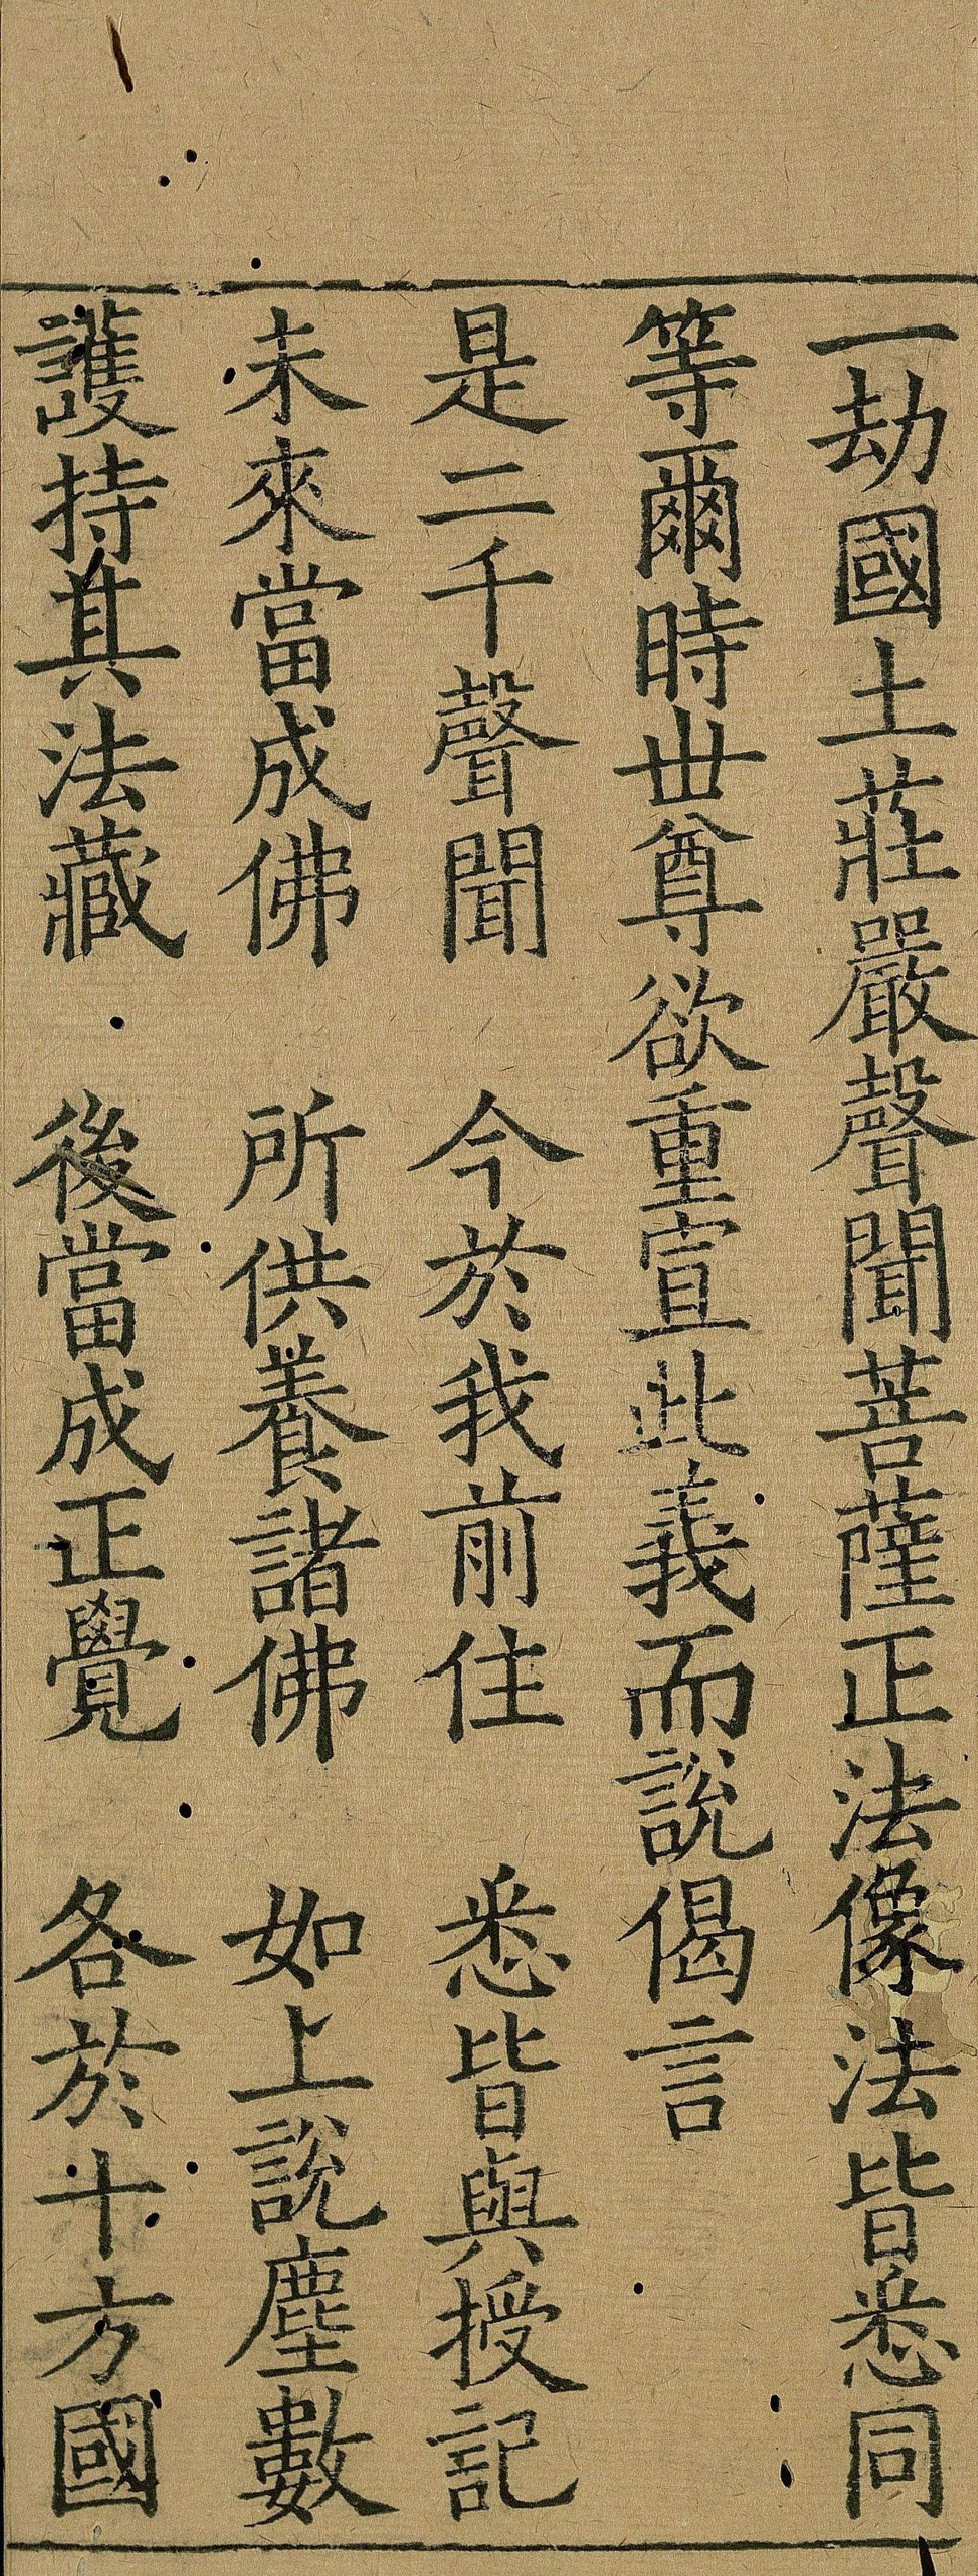 一劫國土莊嚴聲聞菩薩正法像法皆悉同
等爾時世尊欲重宣此義而說偈言
是二千聲聞　今於我前住　悉皆與授記
未來當成佛　所供養諸佛　如上說塵數
護持其法藏　後當成正覺　各於十方國